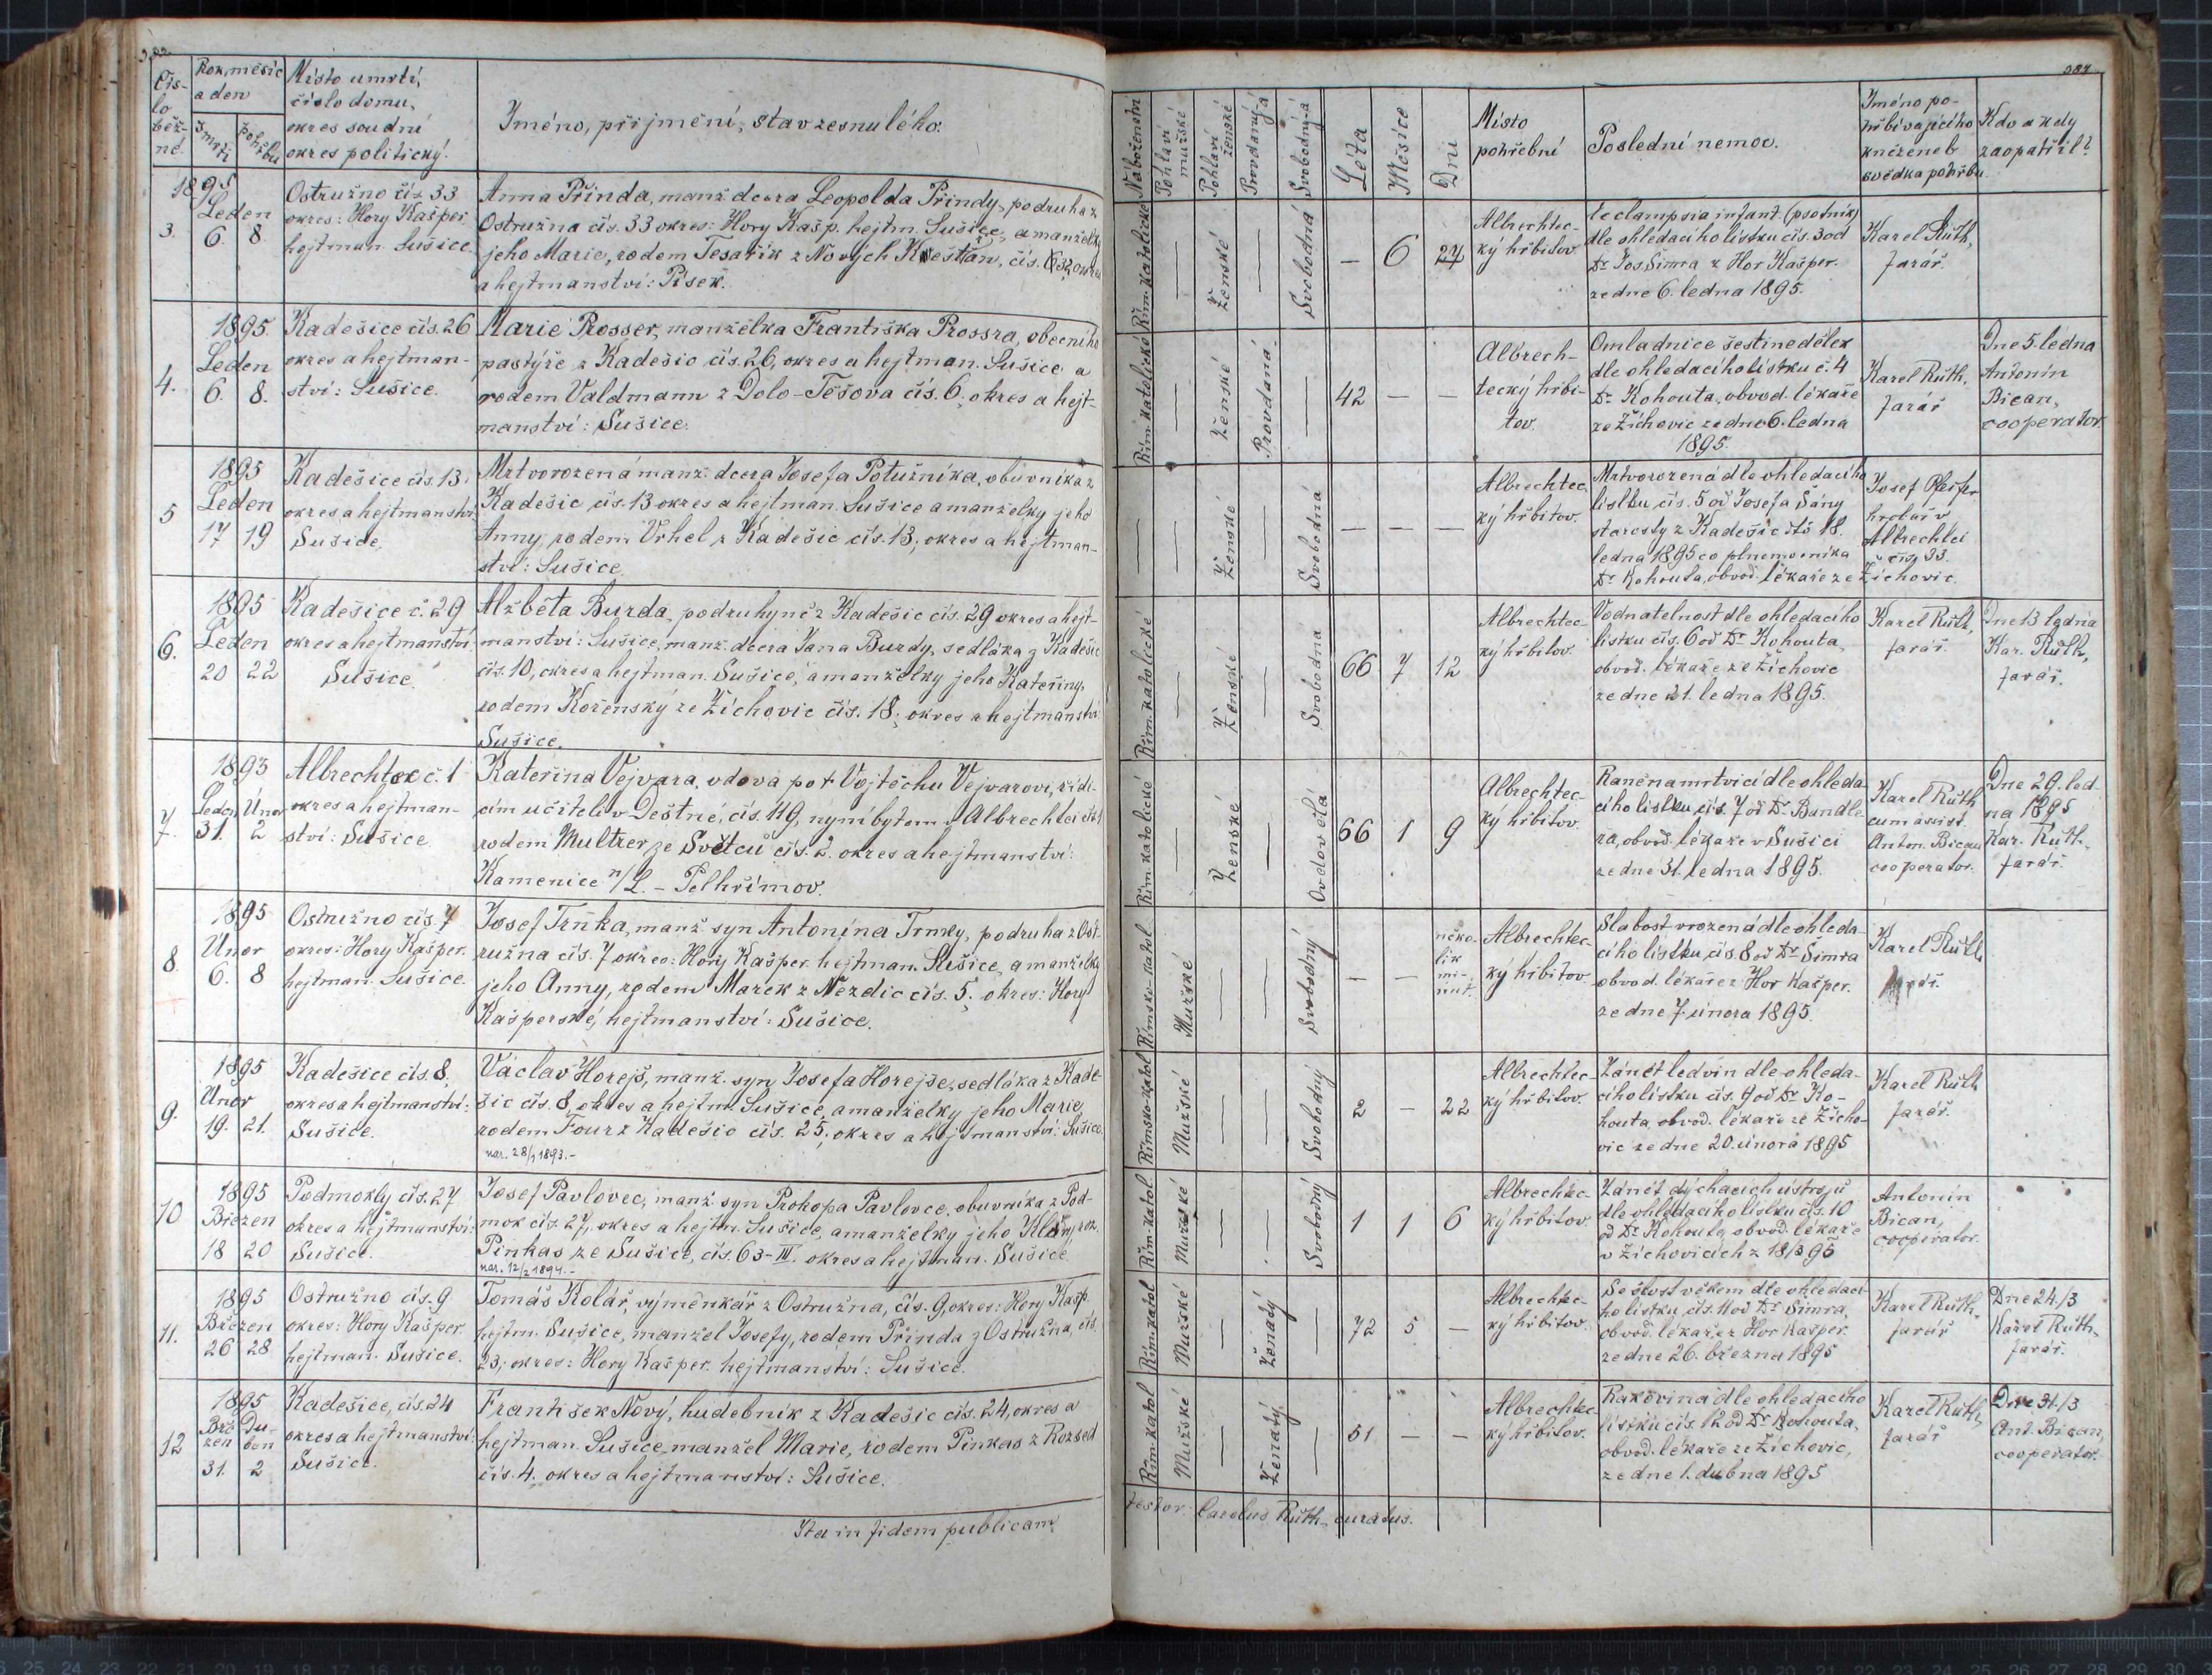 Čís-
lo
běž-
né.
Rok, měsíc
a den
úmrtí
pohřbu
Místo úmrtí,
číslo domu,
okres soudní
okres politický.
Jméno, příjmení, stav zesnulého.
1895
Leden
3. 6. 8.
Ostružno čís. 33
okres: Hory Kašper.
hejtman. Sušice.
Anna Přinda, manž. dcera Leopolda Přindy, podruha z
Ostružna čís. 33 okres: Hory Kašp. hejtm. Sušice, a manželky
jeho Marie, rodem Tesařík z Nových Kreštan, čís.
a hejtmanství: Písek.
1895.
Leden
4. 6. 8.
Kadešice čís. 26
okres a hejtman-
ství: Sušice.
Marie Prosser, manželka Františka Prossra, obecního
pastýře z Kadešic čís. 26, okres a hejtman. Sušice a
rodem Valdmann z Dolo-Těšova čís. 6, okres a hejt-
manství: Sušice.
1895
Leden
5 17 19
Kadešice čís. 13.
okres a hejtmanství:
Sušice.
Mrtvorozená manž. dcera Josefa Potužníka, obuvníka z
Kadešic čís. 13 okres a hejtman. Sušice a manželky jeho
Anny, rodem Vrhel z Kadešic čís. 13, okres a hejtman-
ství: Sušice.
1895
Leden
6. 20 22
Kadešice č. 29
okres a hejtmanství
Sušice.
Alžběta Burda, podruhyně z Kadešic čís. 29 okres a hejt-
manství: Sušice, manž. dcera Jana Burdy, sedláka z Kadešic
čís. 10, okres a hejtman. Sušice, a manželky jeho Kateřiny,
rodem Kořenský ze Žichovic čís. 18, okres a hejtmanství:
Sušice.
1893
Leden Únor
7. 31. 2
Albrechtec č. 1
okres a hejtman-
ství: Sušice
Kateřina Vejvara, vdova po † Vojtěchu Vejvarovi, řídí-
cím učiteli v Deštné, čís. 119, nyní bytem v Albrechtci čís. 1
rodem Multrer ze Světců čís. 2. okres a hejtmanství:
Kamenice n/L. – Pelhřimov.
1895
Únor
8. 6. 8
Ostružno čís. 7
okres: Hory Kašper.
hejtman. Sušice.
Josef Trnka, manž. syn Antonína Trnky, podruha z Ost-
ružna čís. 7 okres: Hory Kašper. hejtman. Sušice, a manželky
jeho Anny, rodem Marek z Nezdic čís. 5, okres: Hory
Kašperské, hejtmanství: Sušice.
1895
Únor
9. 19. 21.
Kadešice čís. 8,
okres a hejtmanství:
Sušice.
Václav Horejš, manž. syn Josefa Horejše, sedláka z Kade-
šic čís. 8, okres a hejtm. Sušice, a manželky jeho Marie,
rodem Four z Kadešic čís. 25, okres a hejtmanství: Sušice.
nar. 28/1 1893.–
1895
Březen
10 18 20
Podmokly čís. 27
okres a hejtmanství:
Sušice.
Josef Pavlovec, manž. syn Prokopa Pavlovce, obuvníka z Pod-
mok čís. 27, okres a hejtm. Sušice, a manželky jeho Kláry, roz.
Pinkas ze Sušice, čís. 63-III. okres a hejtman. Sušice
nar. 12/2 1894.–
1895
Březen
11. 26 28
Ostružno čís. 9
okres: Hory Kašper.
hejtman. Sušice.
Tomáš Kolář, výměnkář z Ostružna, čís. 9, okres: Hory Kašp.
hejtm. Sušice, manžel Josefy, rodem Přinda z Ostružna, čís.
23, okres: Hory Kašper. hejtmanství: Sušice.
1895
Bře- Du-
zen ben
12 31. 2
Kadešice, čís. 24
okres a hejtmanství:
Sušice.
František Nový, hudebník z Kadešic čís. 24, okres a
hejtman. Sušice, manžel Marie, rodem Pinkas z Rozsed
čís. 4. okres a hejtmanství: Sušice.
Ita in fidem publicam
384
Náboženství
Pohlaví
mužské
Pohlaví
ženské
Provdaný-á
Svobodný-á
Léta
Měsíce
Dní
Místo
pohřební
Poslední nemoc.
Jméno po-
hřbívajícího
kněze neb
svědka pohřbu.
Kdo a kdy
zaopatřil?
Řím. katolické
—
Ženské
—
Svobodná
— 6 27
Albrechtec-
ký hřbitov.
Eclampsia infant. (psotník)
dle ohledacího lístku čís. 3 od
Dr Jos. Šimra z Hor Kašper.
ze dne 6. ledna 1895.
Karel Růth,
farář.
Řím. katolické
—
Ženské
Provdaná.
—
42 — —
Albrech-
tecký hřbi-
tov.
Omladnice šestinedělek
dle ohledacího lístku č. 4
Dr Kohouta, obvod. lékaře
ze Žichovic ze dne 6. ledna
1895.
Karel Růth,
farář
Dne 5. ledna
Antonín
Bican,
cooperator.
—
—
Ženské
—
Svobodná
— — —
Albrechtec-
ký hřbitov.
Mrtvorozená dle ohledacího
lístku čís. 5 od Josefa Šány
starosty z Kadešic dto 18.
ledna 1895 co plnomocníka
Dr Kohouta, obvod. lékaře ze Žichovic.
Josef Pfeifer
hrobař v
Albrechtci
čís. 33.
Řím. katolické
—
Ženské
—
Svobodná
66 7 12
Albrechtec-
ký hřbitov.
Vodnatelnost dle ohledacího
lístku čís. 6 od Dr Kohouta,
obvod. lékaře ze Žichovic
ze dne 21. ledna 1895.
Karel Růth,
farář.
Dne 13 ledna
Kar. Růth,
farář.
Řím. katolické
—
Ženské
—
Ovdovělá
66 1 9
Albrechtec-
ký hřbitov.
Raněna mrtvicí dle ohleda-
cího lístku čís. 7 od Dr Bandle-
ra, obvod. lékaře v Sušici
ze dne 31. ledna 1895.
Karel Růth
cum assist.
Anton. Bican
cooperator.
Dne 29. led-
na 1895
Kar. Růth,
farář.
Římsko-katol
Mužské
—
—
Svobodný
— —
něko-
lik
mi-
nut.
Albrechtec-
ký hřbitov
Slabost vrozená dle ohleda-
cího lístku čís. 8 od Dr Šimra
obvod. lékaře z Hor Kašper.
ze dne 7 února 1895.
Karel Růth
farář.
Římsko-katol
Mužské
—
—
Svobodný
2 — 22
Albrechtec-
ký hřbitov.
Zánět ledvin dle ohleda-
cího lístku čís. 9 od Dr Ko-
houta, obvod. lékaře ze Žicho-
vic ze dne 20. února 1895
Karel Růth
farář.
Řím. katol
Mužské
—
—
Svobodný
1 1 6
Albrechtec-
ký hřbitov.
Zánět dýchacích ústrojů
dle ohledacího lístku čís. 10
od Dr Kohouta, obvod. lékaře
v Žichovicích z 18/3 95
Antonín
Bican,
cooperator.
Řím. katol
Mužské
—
Ženatý
—
72 5 —
Albrechtec-
ký hřbitov.
Sešlost věkem dle ohledací-
ho lístku, čís. 11 od Dr Šimra,
obvod. lékaře z Hor Kašper.
ze dne 26. března 1895
Karel Růth,
farář
Dne 24./3
Karel Růth,
farář.
Řím. katol
Mužské
—
Ženatý
—
51 — —
Albrechtec-
ký hřbitov.
Rakovina dle ohledacího
lístku čís. 12 od Dr Kohouta,
obvod. lékaře ze Žichovic,
ze dne 1. dubna 1895
Karel Růth,
farář
Dne 31./3
Ant. Bican,
cooperator.
testor: Carolus Růth, curatus.